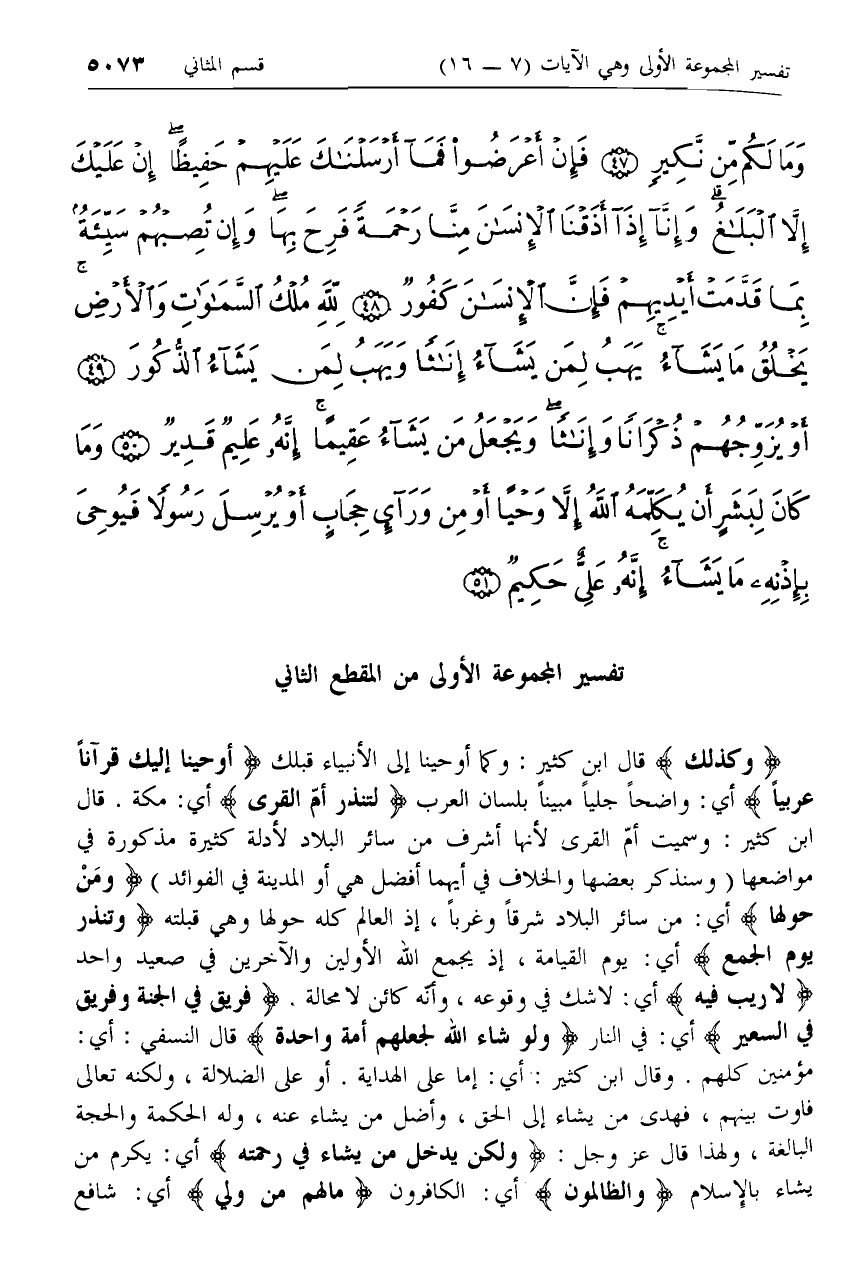 تفسير المجموعة الأولى وهي الآيات (٧ – ١٦) قسم المثاني ٥٠٧٣
وَمَا لَكُم مِّن نَّكِيرٍ ﴿٤٧﴾ فَإِنْ أَعْرَضُوا۟ فَمَآ أَرْسَلْنَـٰكَ عَلَيْهِمْ حَفِيظًا ۖ إِنْ عَلَيْكَ
إِلَّا ٱلْبَلَـٰغُ ۗ وَإِنَّآ إِذَآ أَذَقْنَا ٱلْإِنسَـٰنَ مِنَّا رَحْمَةً فَرِحَ بِهَا ۖ وَإِن تُصِبْهُمْ سَيِّئَةٌۢ
بِمَا قَدَّمَتْ أَيْدِيهِمْ فَإِنَّ ٱلْإِنسَـٰنَ كَفُورٌ ﴿٤٨﴾ لِّلَّهِ مُلْكُ ٱلسَّمَـٰوَٰتِ وَٱلْأَرْضِ ۚ
يَخْلُقُ مَا يَشَآءُ ۚ يَهَبُ لِمَن يَشَآءُ إِنَـٰثًا وَيَهَبُ لِمَن يَشَآءُ ٱلذُّكُورَ ﴿٤٩﴾
أَوْ يُزَوِّجُهُمْ ذُكْرَانًا وَإِنَـٰثًا ۖ وَيَجْعَلُ مَن يَشَآءُ عَقِيمًا ۚ إِنَّهُۥ عَلِيمٌ قَدِيرٌ ﴿٥٠﴾ وَمَا
كَانَ لِبَشَرٍ أَن يُكَلِّمَهُ ٱللَّهُ إِلَّا وَحْيًا أَوْ مِن وَرَآئِ حِجَابٍ أَوْ يُرْسِلَ رَسُولًا فَيُوحِىَ
بِإِذْنِهِۦ مَا يَشَآءُ ۚ إِنَّهُۥ عَلِىٌّ حَكِيمٌ ﴿٥١﴾
تفسير المجموعة الأولى من المقطع الثاني
﴿ وكذلك ﴾ قال ابن كثير : وكما أوحينا إلى الأنبياء قبلك ﴿ أوحينا إليك قرآناً
عربياً ﴾ أي : واضحاً جلياً مبيناً بلسان العرب ﴿ لتنذر أمّ القرى ﴾ أي : مكة . قال
ابن كثير : وسميت أمّ القرى لأنها أشرف من سائر البلاد لأدلة كثيرة مذكورة في
مواضعها ( وسنذكر بعضها والخلاف في أيهما أفضل هي أو المدينة في الفوائد ) ﴿ ومَنْ
حولها ﴾ أي : من سائر البلاد شرقاً وغرباً ، إذ العالم كله حولها وهي قبلته ﴿ وتنذر
يوم الجمع ﴾ أي : يوم القيامة ، إذ يجمع الله الأولين والآخرين في صعيد واحد
﴿ لاريب فيه ﴾ أي : لاشك في وقوعه ، وأنّه كائن لا محالة . ﴿ فريق في الجنة وفريق
في السعير ﴾ أي : في النار ﴿ ولو شاء الله لجعلهم أمة واحدة ﴾ قال النسفي : أي :
مؤمنين كلهم . وقال ابن كثير : أي : إما على الهداية . أو على الضلالة ، ولكنه تعالى
فاوت بينهم ، فهدى من يشاء إلى الحق ، وأضل من يشاء عنه ، وله الحكمة والحجة
البالغة ، ولهذا قال عز وجل : ﴿ ولكن يدخل من يشاء في رحمته ﴾ أي : يكرم من
يشاء بالإسلام ﴿ والظالمون ﴾ أي : الكافرون ﴿ مالهم من ولي ﴾ أي : شافع